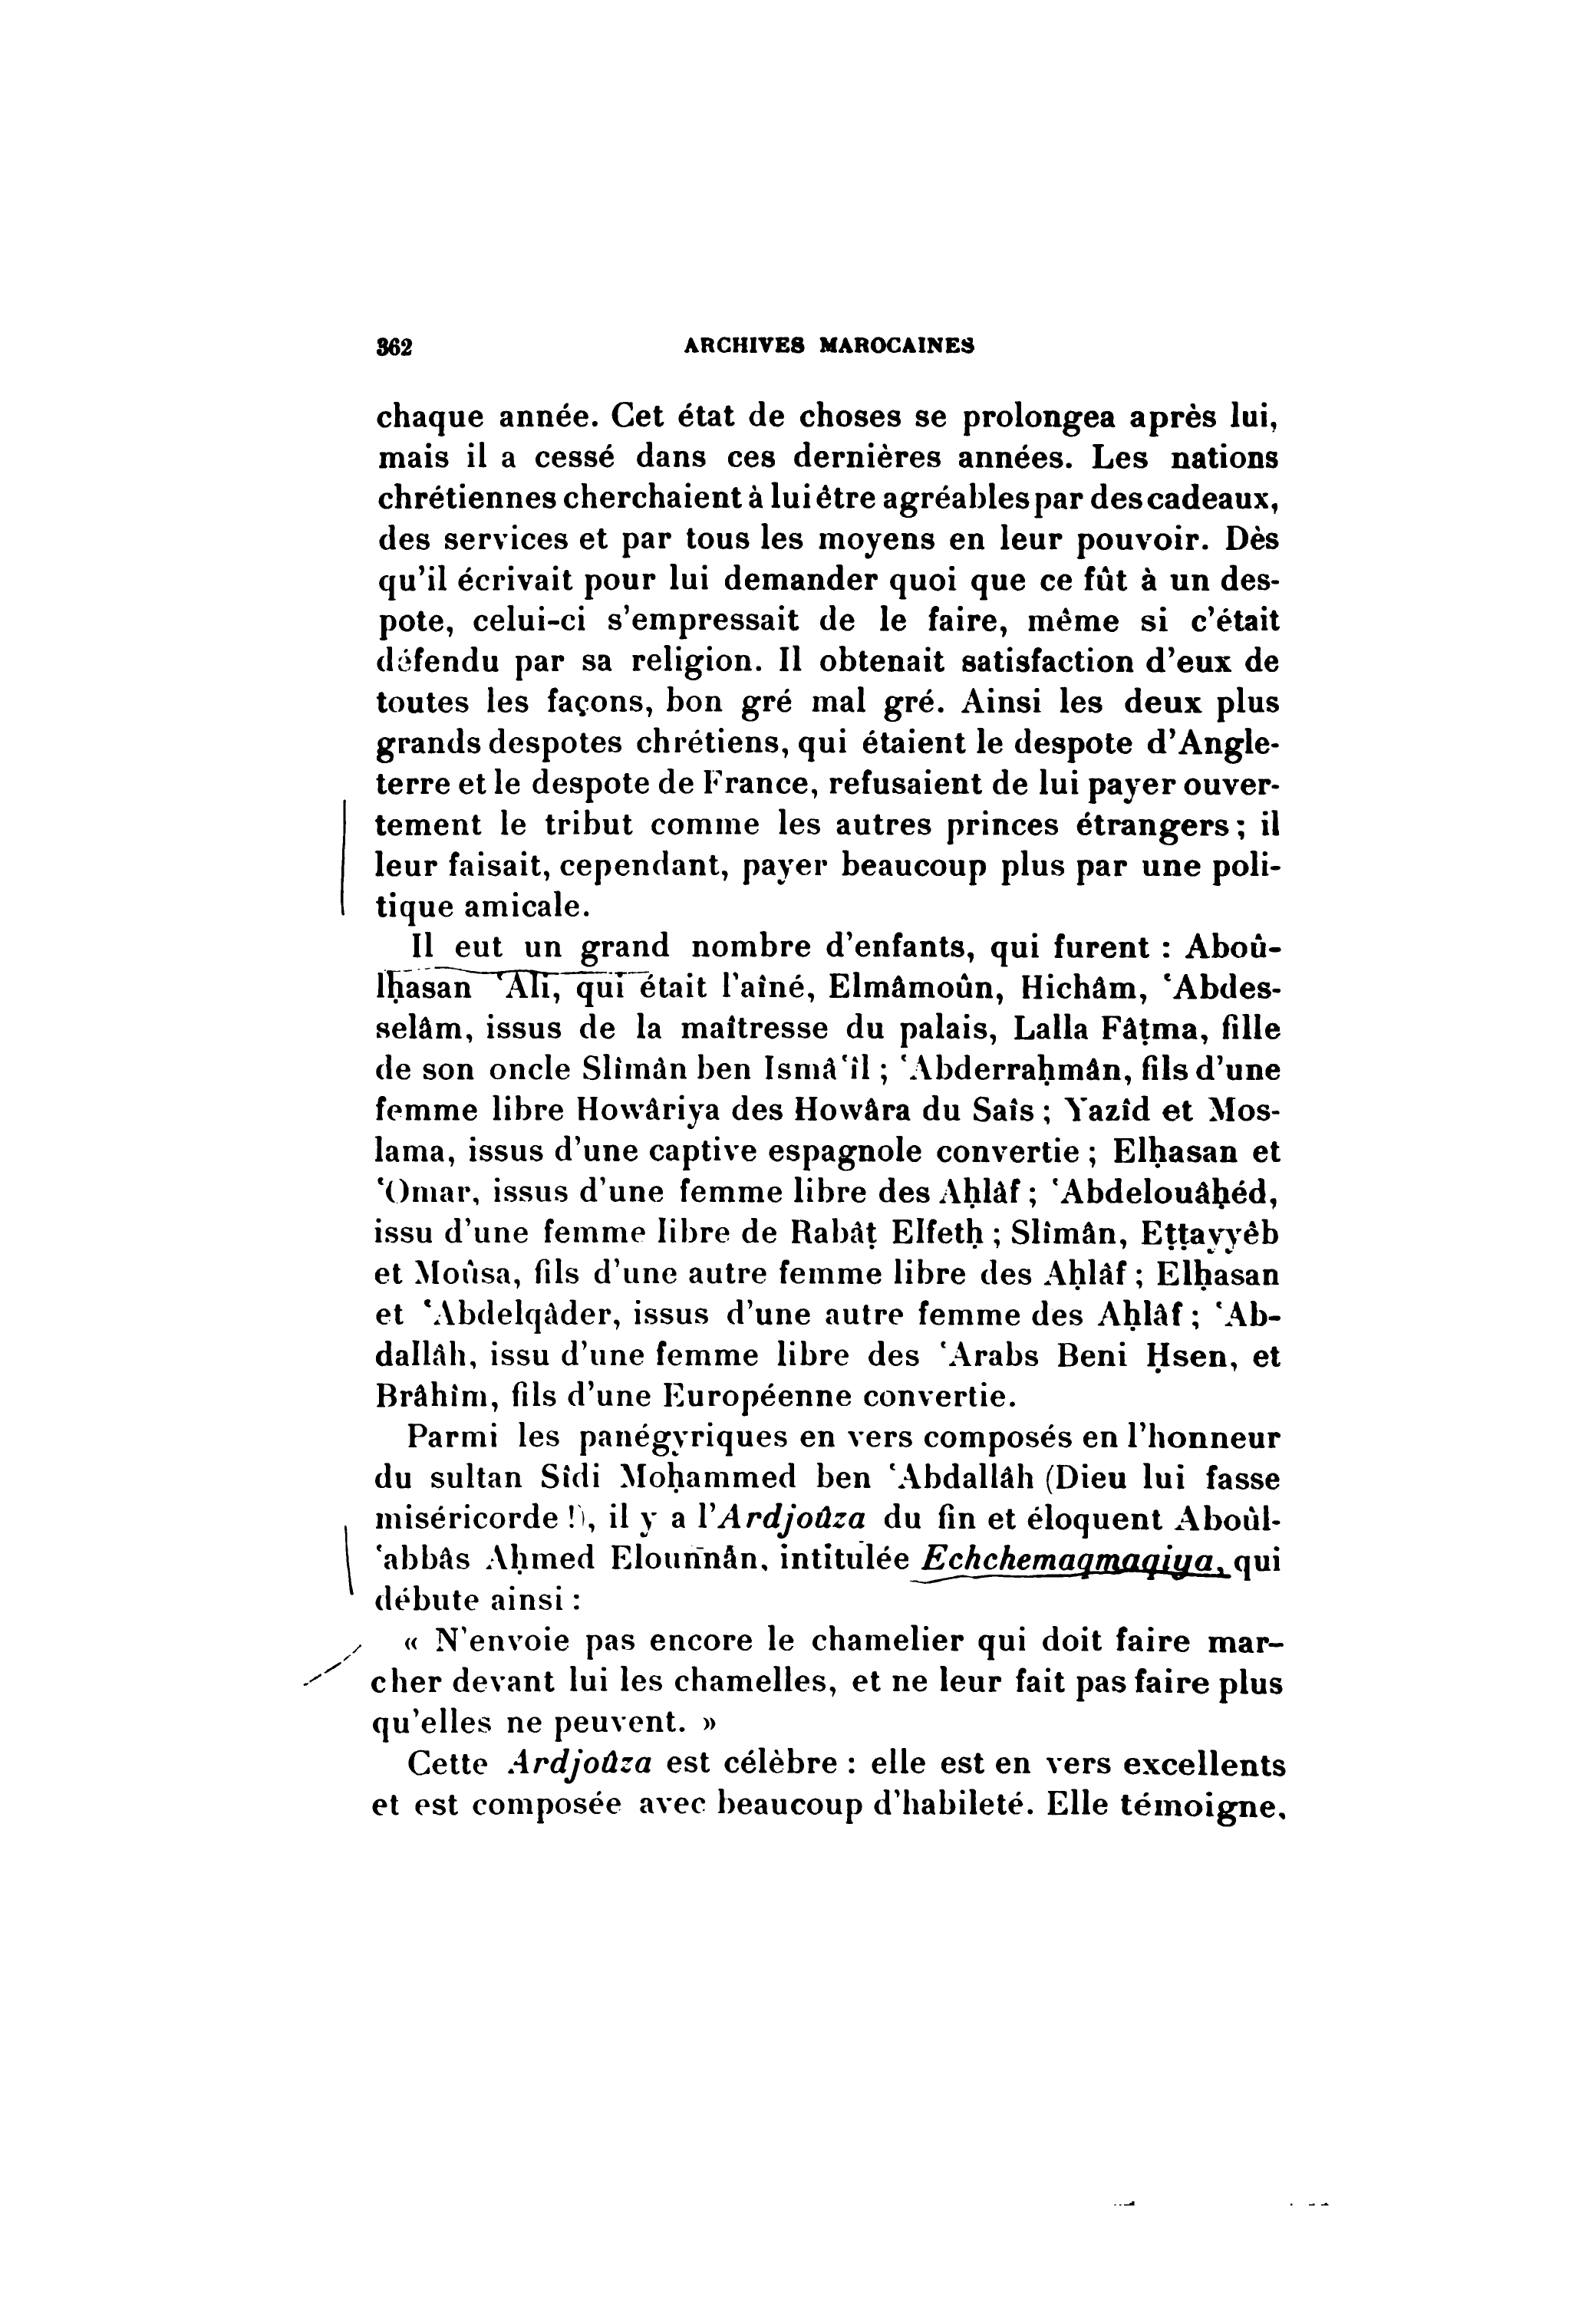 362 ARCHIVES MAROCAINES
chaque année. Cet état de choses se prolongea après lui,
mais il a cessé dans ces dernières années. Les nations
chrétiennes cherchaient à lui être agréables par des cadeaux,
des services et par tous les moyens en leur pouvoir. Dès
qu'il écrivait pour lui demander quoi que ce fût à un des-
pote, celui-ci s'empressait de le faire, même si c'était
défendu par sa religion. Il obtenait satisfaction d'eux de
toutes les façons, bon gré mal gré. Ainsi les deux plus
grands despotes chrétiens, qui étaient le despote d'Angle-
terre et le despote de France, refusaient de lui payer ouver-
tement le tribut comme les autres princes étrangers ; il
leur faisait, cependant, payer beaucoup plus par une poli-
tique amicale.
Il eut un grand nombre d'enfants, qui furent : Aboû-
lḥasan ʿAli, qui était l'aîné, Elmâmoûn, Hichâm, ʿAbdes-
selâm, issus de la maîtresse du palais, Lalla Fâṭma, fille
de son oncle Slîmân ben Ismâʿîl ; ʿAbderraḥmân, fils d'une
femme libre Howâriya des Howâra du Saîs ; Yazîd et Mos-
lama, issus d'une captive espagnole convertie ; Elḥasan et
ʿOmar, issus d'une femme libre des Aḥlâf ; ʿAbdelouâḥéd,
issu d'une femme libre de Rabâṭ Elfetḥ ; Slîmân, Eṭṭayyêb
et Moûsa, fils d'une autre femme libre des Aḥlâf ; Elḥasan
et ʿAbdelqâder, issus d'une autre femme des Aḥlâf ; ʿAb-
dallâh, issu d'une femme libre des ʿArabs Beni Ḥsen, et
Brâhîm, fils d'une Européenne convertie.
Parmi les panégyriques en vers composés en l'honneur
du sultan Sîdi Moḥammed ben ʿAbdallâh (Dieu lui fasse
miséricorde !), il y a l'Ardjoûza du fin et éloquent Aboûl-
ʿabbâs Aḥmed Elounnân, intitulée Echchemaqmaqiya, qui
débute ainsi :
« N'envoie pas encore le chamelier qui doit faire mar-
cher devant lui les chamelles, et ne leur fait pas faire plus
qu'elles ne peuvent. »
Cette Ardjoûza est célèbre : elle est en vers excellents
et est composée avec beaucoup d'habileté. Elle témoigne,